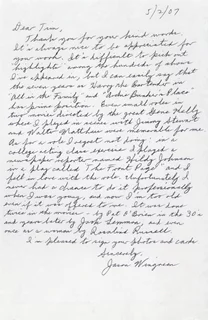 5/7/07
Dear Tim,
Thank you for your kind words.
It's always nice to be appreciated for
your work. It's difficult to pick out
"highlights" among the hundreds of shows
I've appeared in, but I can easily say that
the seven years as Harry the Bartender on
"All in the Family" and "Archie Bunker's Place"
has prime position. Even small roles in
two movies directed by the great Gene Kelly
when I played scenes with Jimmy Stewart
and Walter Matthau were memorable for me.
As for a role I regret not doing in a
college acting class exercise I played a
newspaper reporter named Hildy Johnson
in a play called "The Front Page" and I
fell in love with the role. Unfortunately I
never had a chance to do it professionally
when I was young, and now I'm too old
even if it was offered to me. It was done
three in the movies - by Pat O'Brien in the 30's
and years later by Jack Lemmon, and even
once as a woman by Rosalind Russell.
I'm pleased to sign your photos and cards.
Sincerely,
Jason Wingreen